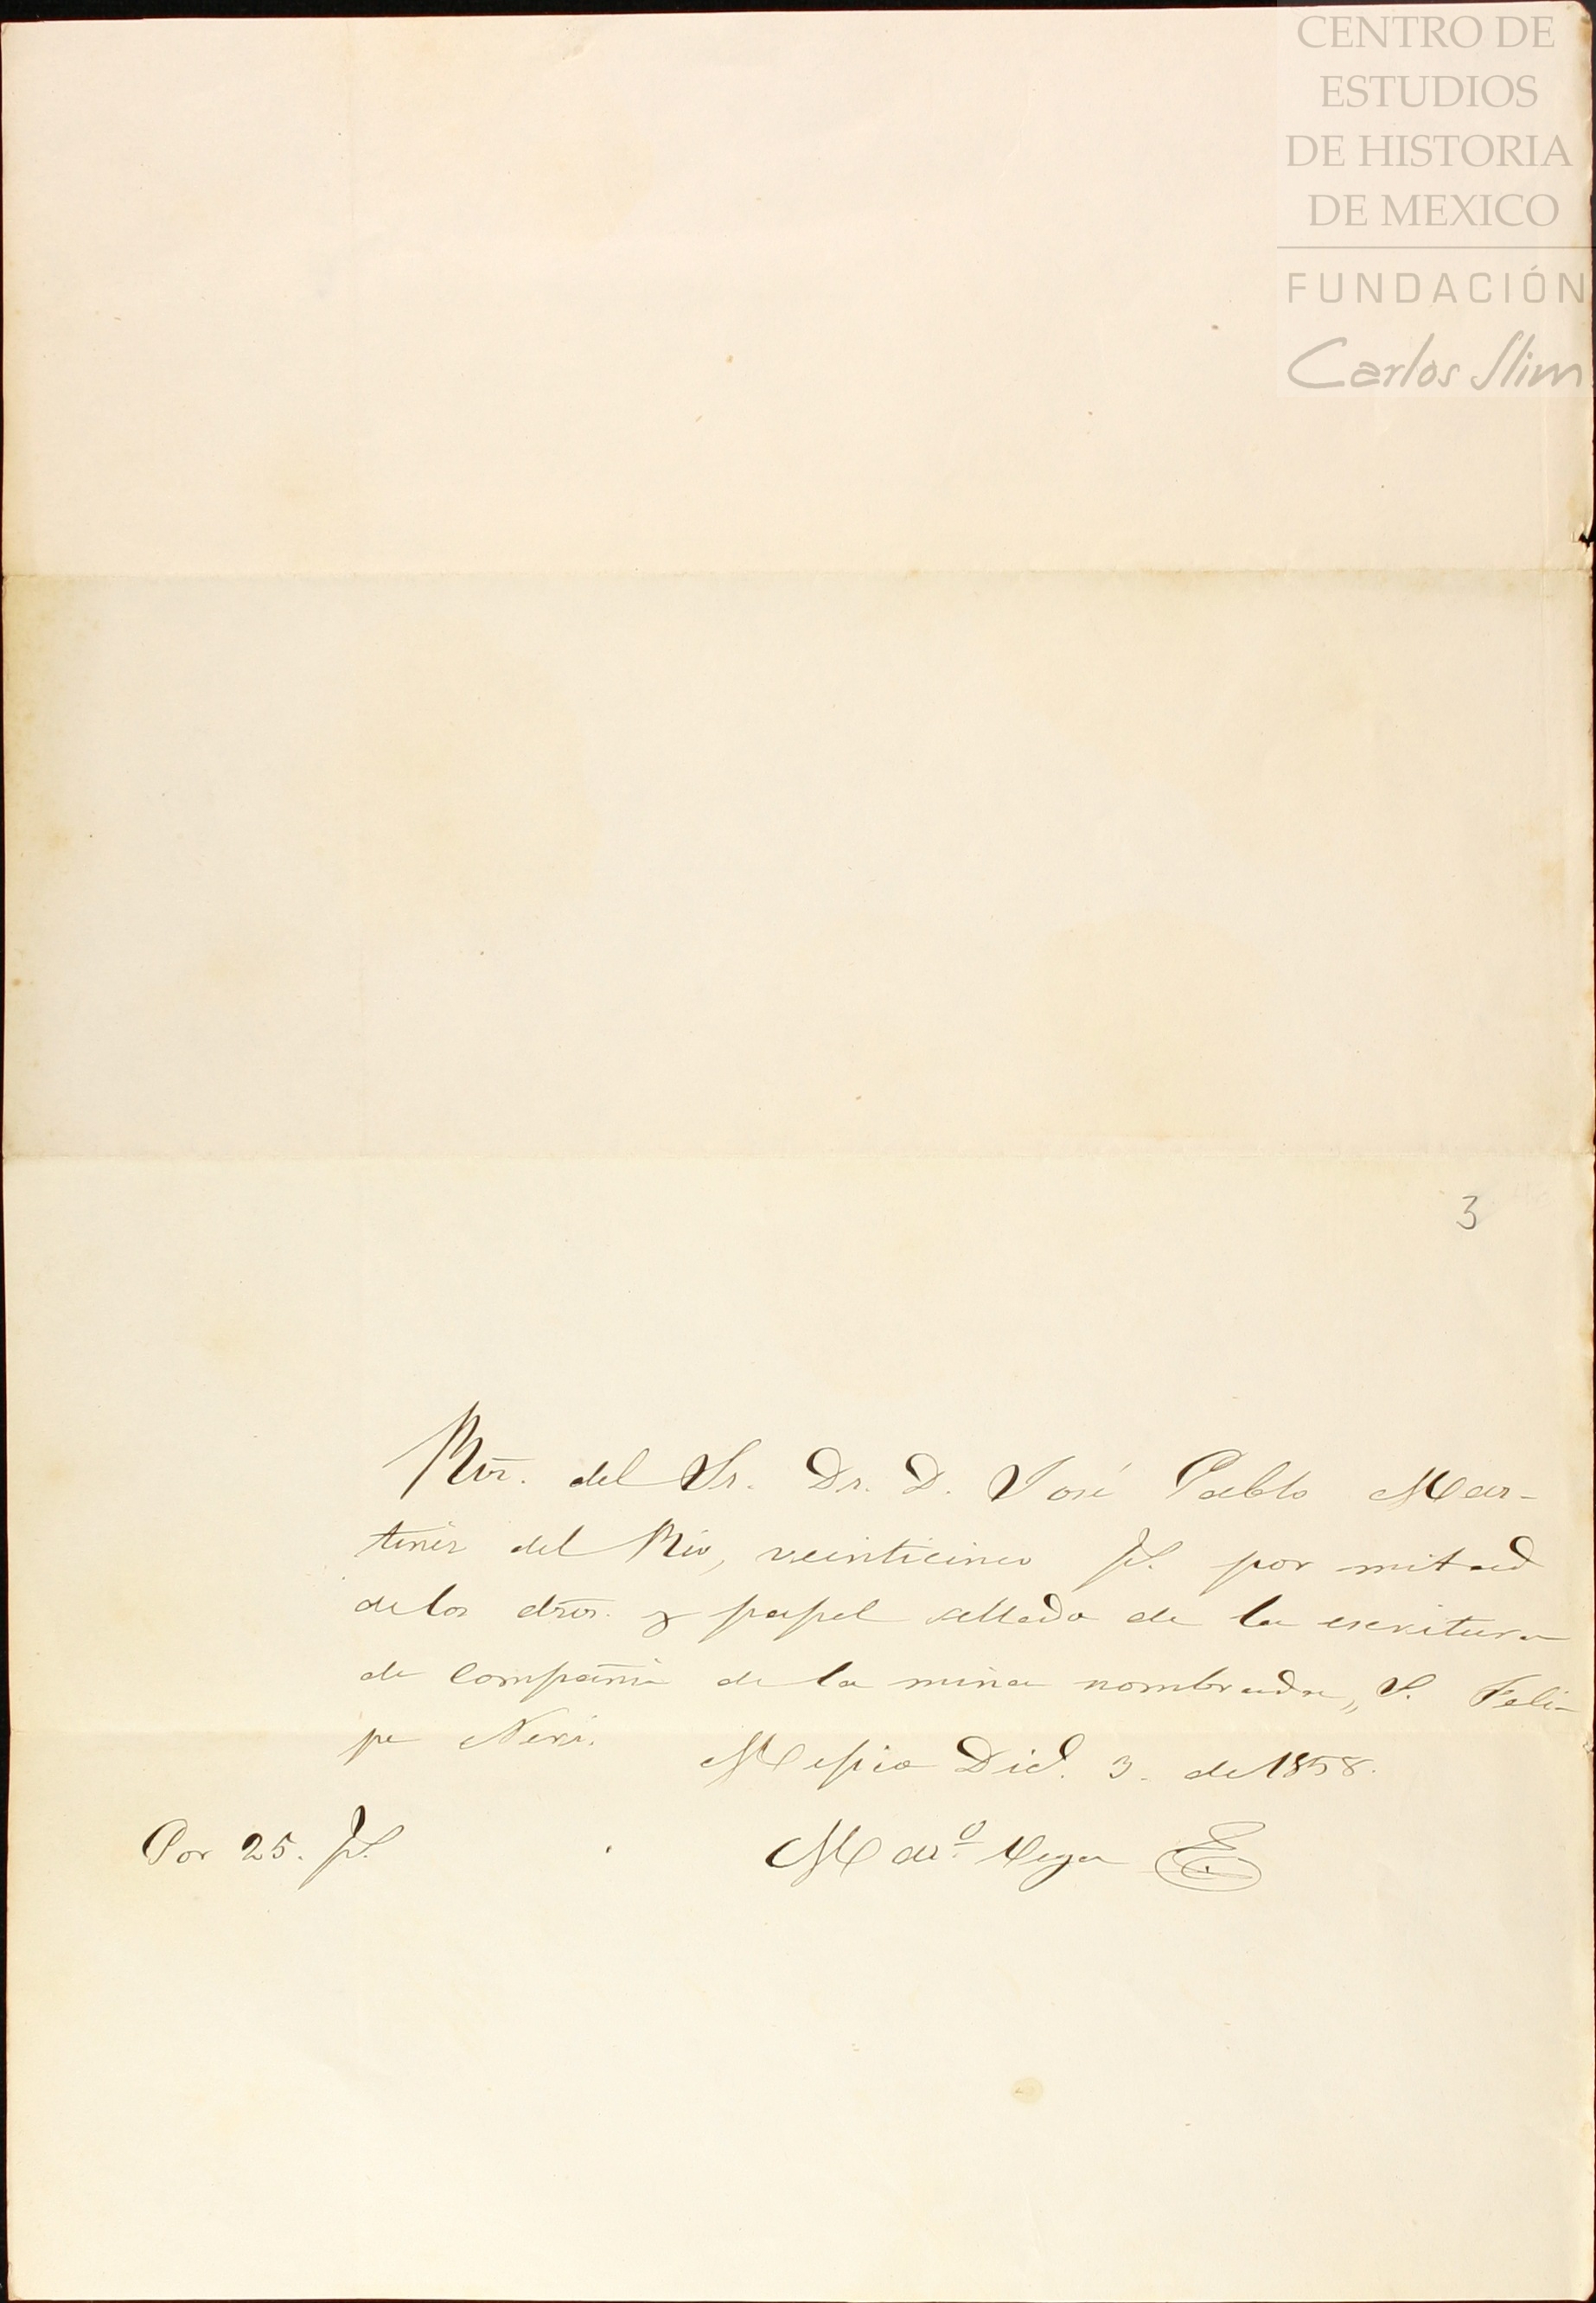 CENTRO DE
ESTUDIOS
DE HISTORIA
DE MEXICO
FUNDACIÓN
Carlos Slim
3
del Sr. Dr. D. José Pablo Mar-
tinez del Rio, veinticinco ps. por mitad
de los dros. y papel sellado de la escritura
de Compañia de la mina nombrada „S. Feli-
pe Neri.
Mejico Dic. 3. de 1858.
Por 25. ps.
Mar.º Vega